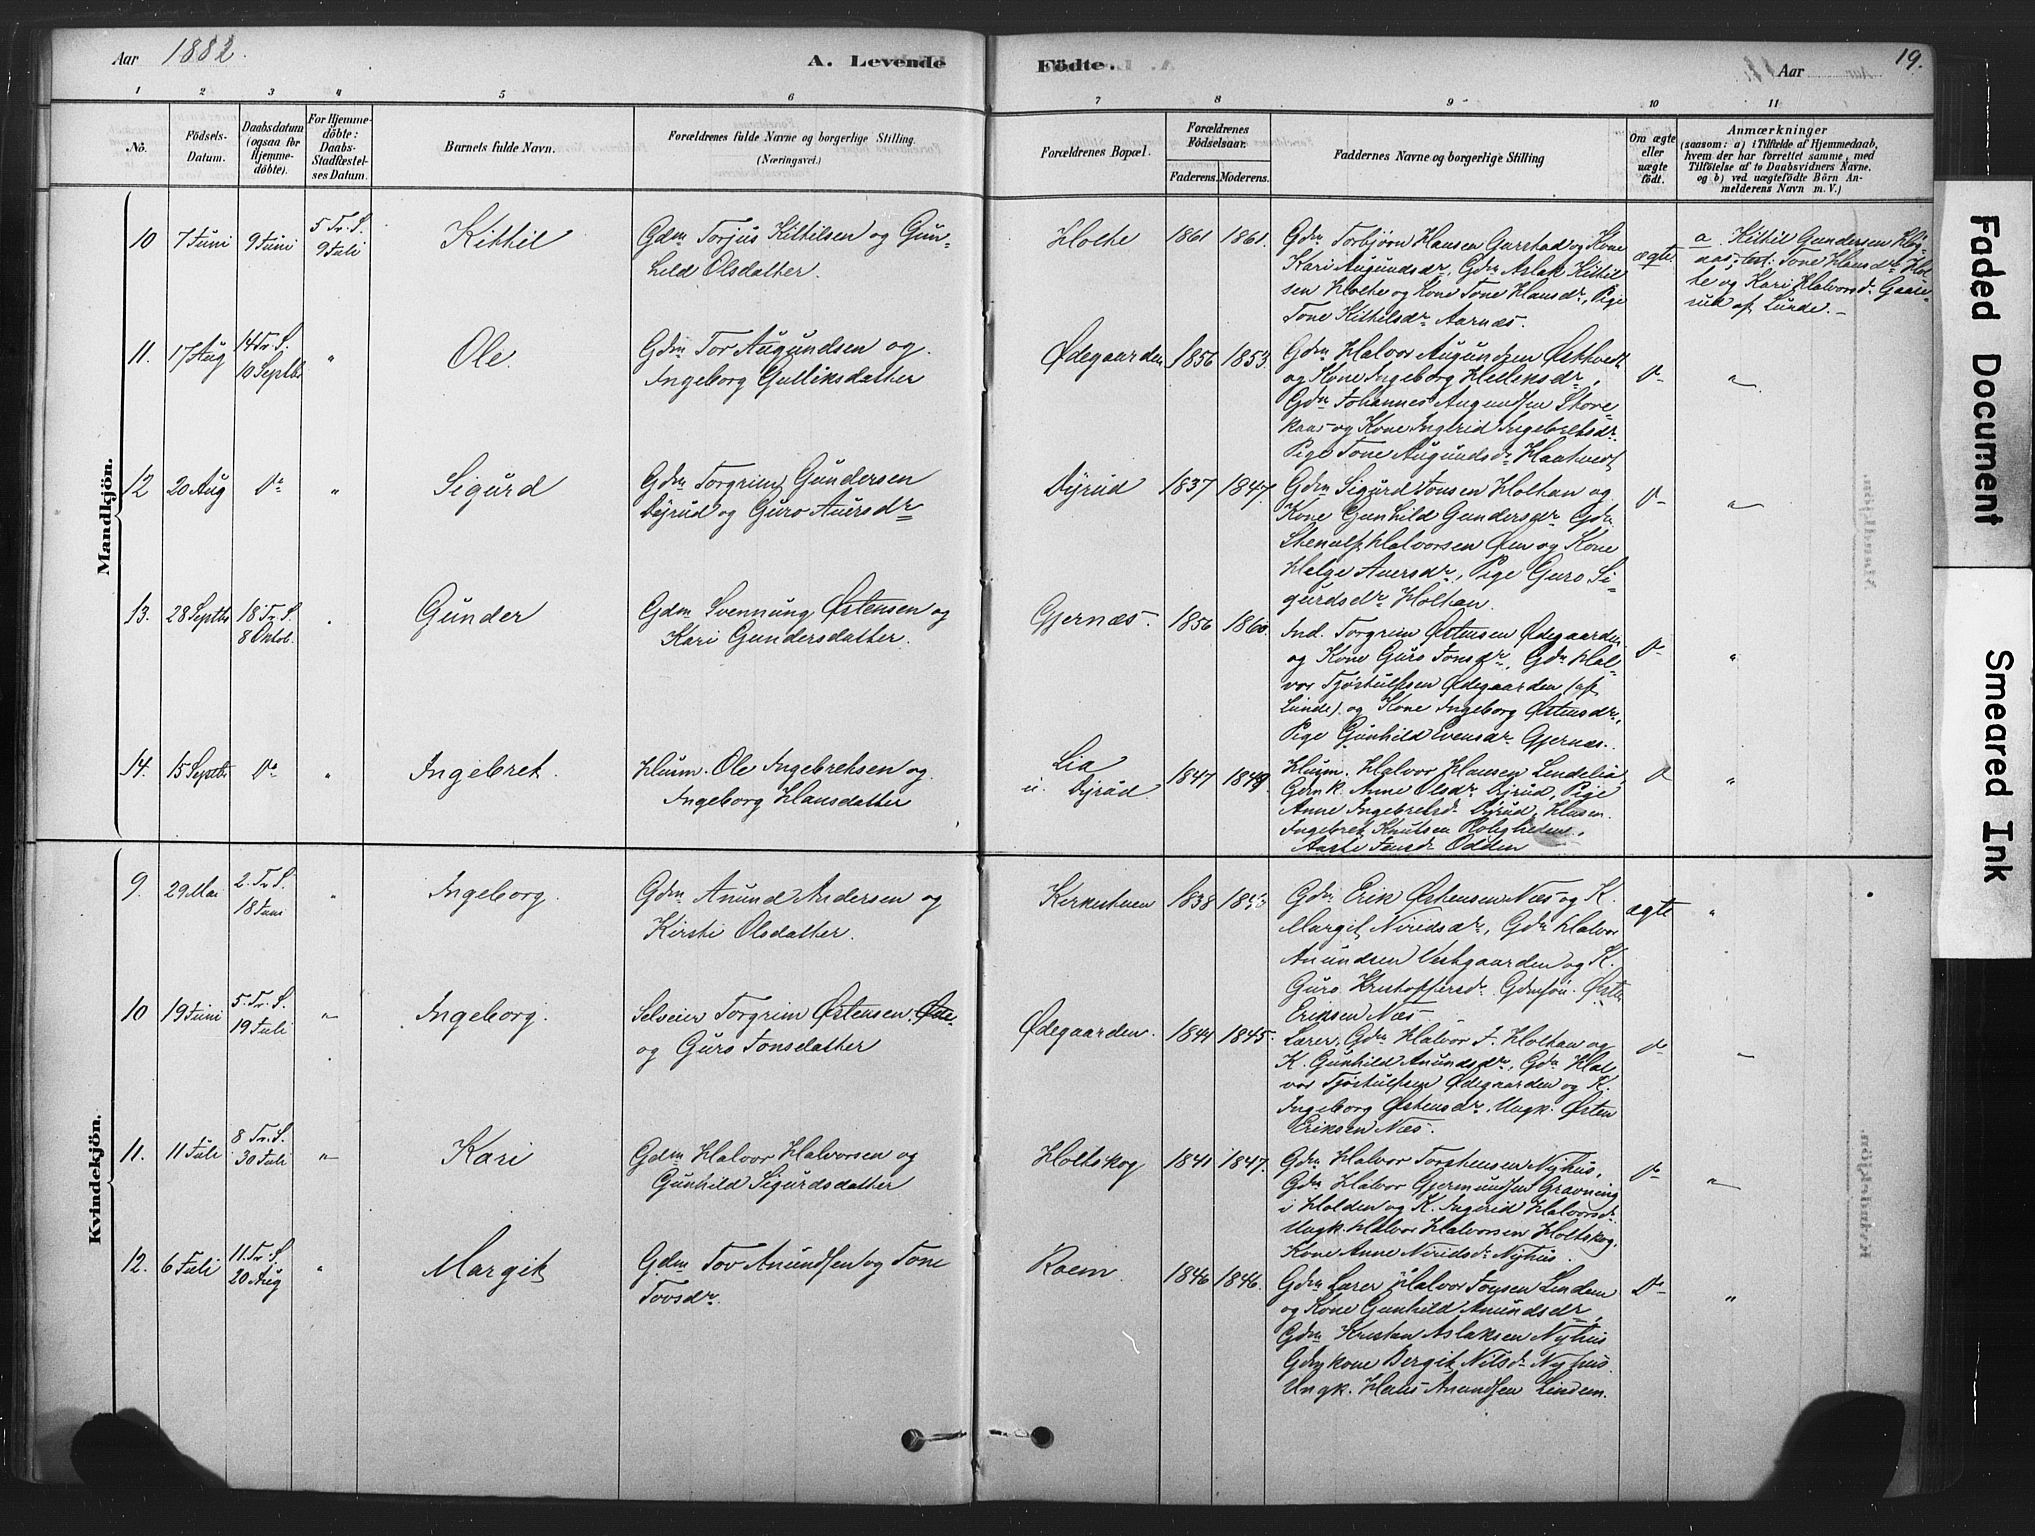 Aar 1882.
A. Levende
Fødte.
Aar
19.
1
2
3
4
5
6
7
8
9
10
11
No.
Fødsels-
Datum.
Daabsdatum
(ogsaa for
Hjemme-
döbte).
For Hjemme-
döbte:
Daabs-
Stadfæstel-
ses Datum.
Barnets fulde Navn.
Forældrenes fulde Navne og borgerlige Stilling.
(Næringsvei.)
Forældrenes Bopæl.
Forældrenes
Födselsaar.
Faderens.
Moderens.
Faddernes Navne og borgerlige Stilling
Om ægte
eller
uægte
födt.
Anmærkninger
(saasom: a) i Tilfælde af Hjemmedaab,
hvem der har forrettet samme, med
Tilföielse af to Daabsvidners Navne,
og b) ved uægtefödte Börn An-
melderens Navn m. V.)
Mandkjön.
10
7 Juni
9 Juni
5 Tr. S.
9 Juli
Kittil
Gdm Torjus Kittilsen og Gun-
hild Olsdatter.
Holte
1861
1861.
Gdm Torbjørn Hansen Garstad og Kone
Kari Augundsdr, Gdm Aslak Kittil
sen Holte og Kone Tone Hansdr, Pige
Tone Kittilsdr Aarnæs.
ægte
a. Kittil Gundersen
test: Tone Hansdr Hol-
te og Kari Halvorsd.
af Lunde.
11.
17 Aug
14 Tr. S.
10 Septbr
"
Ole.
Gdm Tor Augundsen og
Ingeborg Gulliksdatter
Ødegaarden
1856
1853.
Gdm Halvor Augundsen Østtvedt
og Kone Ingeborg Helleksdr,
Gdm Johannes Augundsen Store-
og Kone Ingerid Ingebretsdr
Pige Tone Augundsd. Haatvedt
Do
"
12
20 Aug
Do
"
Sigurd
Gdm Torgrim Gundersen
Dyrud og Guro Auersdr
Dyrud
1837
1847.
Gdm Sigurd Jonsen Holtan og
Kone Gunhild Gundersdr Gdm
Stenulf Halvorsen Øen og Kone
Helge Auersdr, Pige Guro Si-
gurdsdr Holtan.
Do
"
13.
28 Septbr
18 Tr. S.
8 Oktob.
"
Gunder
Gdm Svennung Østensen og
Kari Gundersdatter.
Gjernæs.
1856
1860.
Ind. Torgrim Østensen Ødegaarden
og Kone Guro Jonsdr, Gdm Hal-
vor Tjøstulfsen Ødegaarden (af
Lunde) og Kone Ingeborg Østensdr,
Pige Gunhild Evensdr Gjernæs.
Do
"
14.
15 Septbr
Do
"
Ingebret
Husm. Ole Ingebretsen og
Ingeborg Hansdatter
Lia
u. Dyrud.
1847
1849.
Husm. Halvor Hansen Lindelia
Gdmk. Anne Olsdr Dyrud, Pige
Anne Ingebretsd. Dyrud, Husm.
Ingebret Knutsen Roligheden,
Aaste Jensd. Odden
Do
"
Kvindekjön.
9.
29 Mai
2. Tr. S.
18 Juni
"
Ingeborg.
Gdm Anund Andersen og
Kirsti Olsdatter.
Kirkestuen
1838
Gdm Erik Østensen Næs og K.
Margit Niridsdr, Gdm Halvor
Anundsen Vestgaarden og K.
Guro Kristoffersdr. Gdmsøn. Østen
Eriksen Næs.
ægte
"
10
19 Juni
5 Tr. S.
19 Juli
"
Ingeborg.
Selveier Torgrim Østensen Øde-
og Guro Jonsdatter
Ødegaarden.
1844
1845.
Lærer, Gdm Halvor J. Holtan og
K. Gunhild Anundsdr, Gdm Hal-
vor Tjøstulfsen Ødegaarden og K.
Ingeborg Østensdr. Ungk. Østen
Eriksen Næs.
Do
"
11.
11 Juli
8 Tr. S.
30 Juli
"
Kari
Gdm Halvor Halvorsen og
Gunhild Sigurdsdatter
Holtskog
1841
1847.
Gdm Halvor Torstensen Nyhus,
Gdm Halvor Gjermundsen Gravning
i Holden og K. Ingerid Halvorsd.
Ungk. Halvor Halvorsen Holtskog.
Kone Anne Niridsdr Nyhus
Do
"
12.
6 Juli
11 Tr. S.
20 Aug
"
Margit
Gdm Tov Anundsen og Tone
Tovsdr.
Roem
1846
1846.
Gdm Lærer Halvor Jonsen Lindem
og Kone Gunhild Anundsdr,
Gdm Kristen Aslaksen Nyhus
Gdmkone Bergit Nilsdr Nyhus.
Ungk. Hans Anundsen Lindem.
Do
"
Faded Document
Smeared Ink